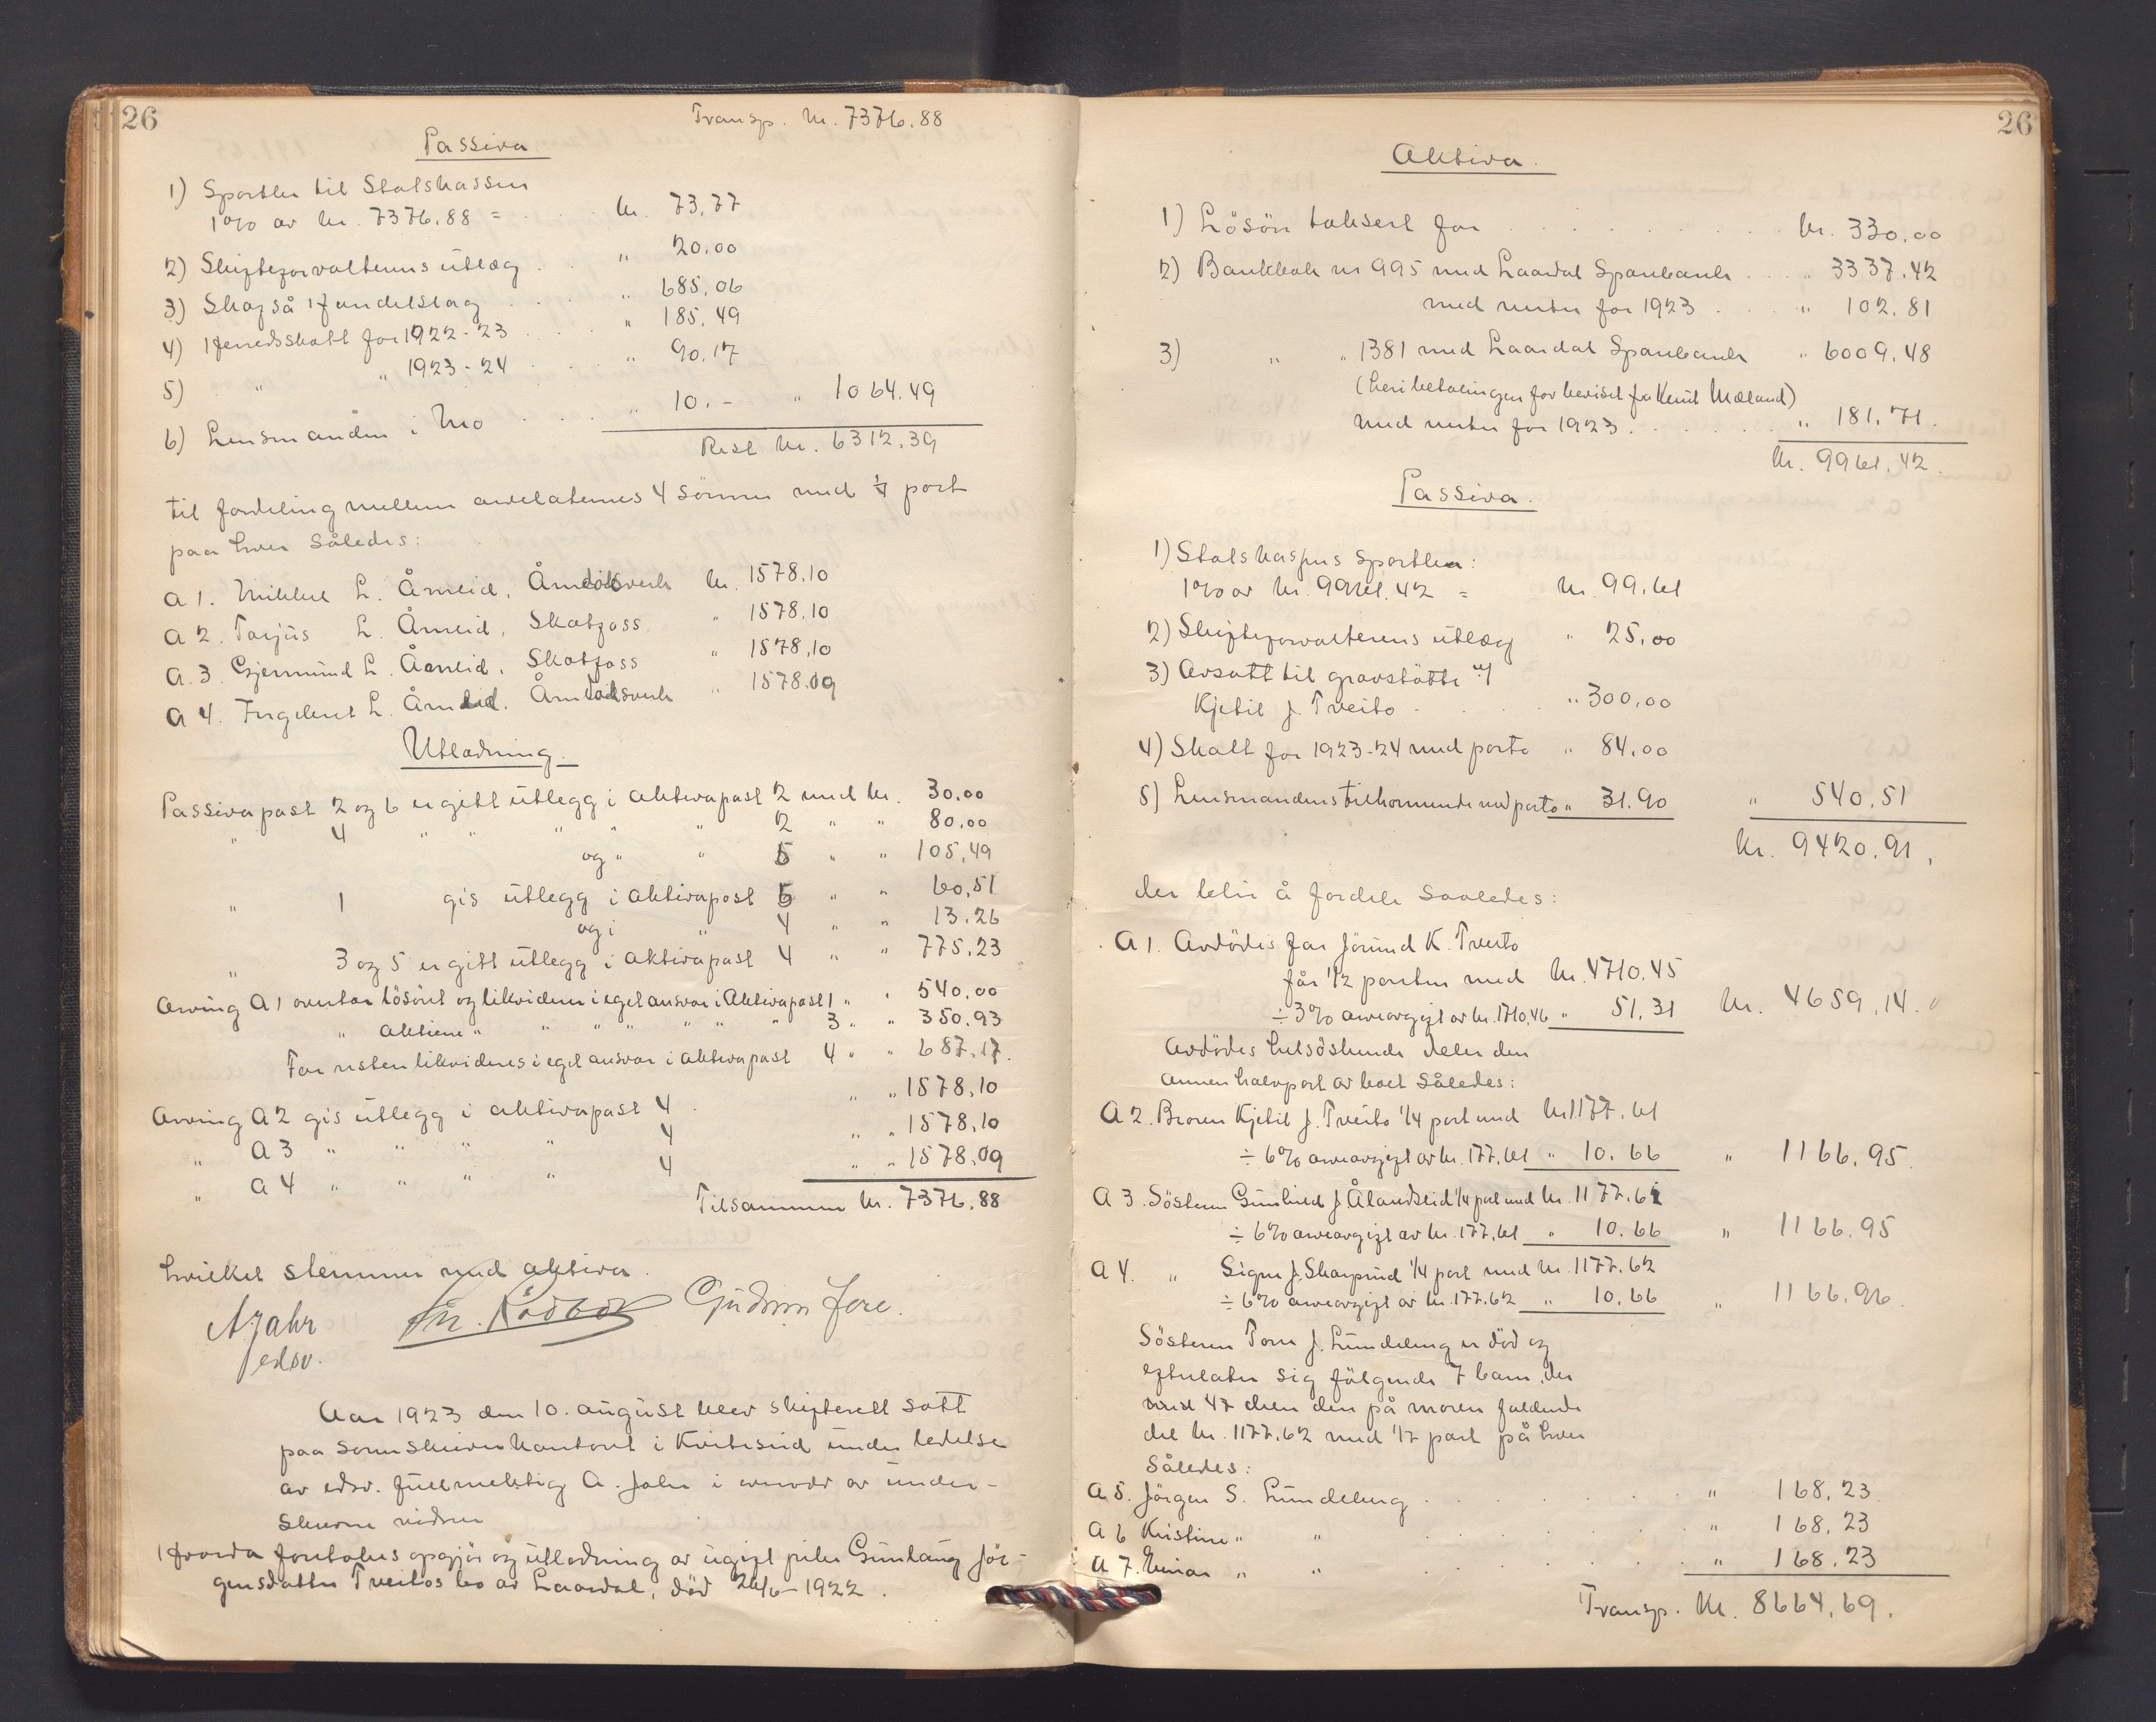 26
Transp. kr. 7376.88
Passiva
1) Sportler til Statskassen
1% av kr. 7376.88 = . . . . kr. 73,77
2) Skifteforvalterens utlæg . . " 20.00
3) Skafså Handelslag . . . . " 685.06
4) Herredsskatt for 1922-23 . . . " 185.49
5) " " 1923-24 . . . " 90.17
6) Lensmanden i Mo . . . " 10.- " 1064.49
Rest kr. 6312.39
til fordeling mellem avdelaternes 4 sönner med 1/4 part
paa hver således:
A 1. Mikkel L. Åmlid, Åmdalsverk kr. 1578.10
A 2. Tarjus L. Åmlid, Skotfoss " 1578.10
A.3. Gjermund L. Åmlid, Skotfoss " 1578.10
A 4. Ingebret L. Åmlid, Åmdalsverk " 1578.09
Utlodning.
Passivapost 2 og 6 er gitt utlegg i aktivapost 2 med kr. 30.00
" 4 " " " " " 2 " " 80.00
og " " 5 " " 105.49
" 1 gis utlegg i aktivapost 5 " " 60,51
og i " 4 " " 13.26
" 3 og 5 er gitt utlegg i aktivapost 4 " " 775.23
Arving A 1 overtar lösöret og likviderer i eget ansvar i Aktivapost 1 " " 540.00
" aktiene " " " " " " " 3 " " 350.93
For resten likvideres i eget ansvar i aktivapost 4 " " 687.17.
Arving A 2 gis utlegg i aktivapost 4 . " " 1578,10
" A 3 " " " " 4 " " 1578,10
" A 4 " " " " 4 " " 1578.09
Tilsammen kr. 7376.88
hvilket stemmer med aktiva.
A Jahr
edsv.
Gudrun Jore.
Aar 1923 den 10. august blev skifterett satt
paa sorenskriverkontoret i Kviteseid under ledelse
av edsv. fullmektig A. Jahr i nærvær av under-
skrevne vidner
Hvorda foretokes opgjör og utlodning av ugift pike Gunlaug Jör-
gensdatter Tveitos bo av Laardal, död 26/6-1922.
26
Aktiva.
1) Lösöre taksert for . . . . . . . . . kr. 330.00
2) Bankbok nr 995 med Laardal Sparebank . . . " 3337.42
med renter for 1923 . . " 102.81
3) " " 1381 med Laardal Sparebank " 6009.48
(heri betalingen for beviset fra Knut Mæland)
med renter for 1923 . . . . . . " 181.71.
Kr. 9961.42.
Passiva.
1) Statskassens sportler:
1% av kr. 9961.42 = kr. 99.61
2) Skifteforvalterens utlæg " 25.00
3) Avsatt til gravstötte v/
Kjetil J. Tveito . . . . " 300.00
4) Skatt for 1923-24 med porto " 84.00
5) Lensmandens tilkommende med porto " 31.90 " 540.51
Kr. 9420.91.
der blir å fordele saaledes:
A 1. Avdödes far Jörund K. Tveito
får 1/2 parten med kr. 4710.45
÷ 3% arveavgift av kr. 1710.46 " 51.31 Kr. 4659.14.
Avdödes helsöskende deler den
annen halvpart av boet således:
A 2. Broren Kjetil J. Tveito 1/4 part med kr 1177.61
÷ 6% arveavgift av kr. 177.61 " 10.66 " 1166.95.
A 3. Sösteren Gunhild J. Ålandslid 1/4 part med kr. 1177.61
÷ 6% arveavgift av kr. 177.61 " 10.66 " 1166.95
A 4. " Signe J. Skarprud 1/4 part med kr. 1177.62
÷ 6% arveavgift av kr. 177.62 " 10.66 " 1166.96.
Sösteren Tone J. Lundeberg er död og
efterlater sig fölgende 7 barn, der
deler den på moren faldende
del kr. 1177.62 med 1/7 part på hver
således:
A 5. Jörgen S. Lundeberg . . . . . . . " 168.23
A 6 Kristine " " . . . . . . " 168.23
A 7. Einar " " . . . . . . " 168.23
Transp. kr. 8664.69.